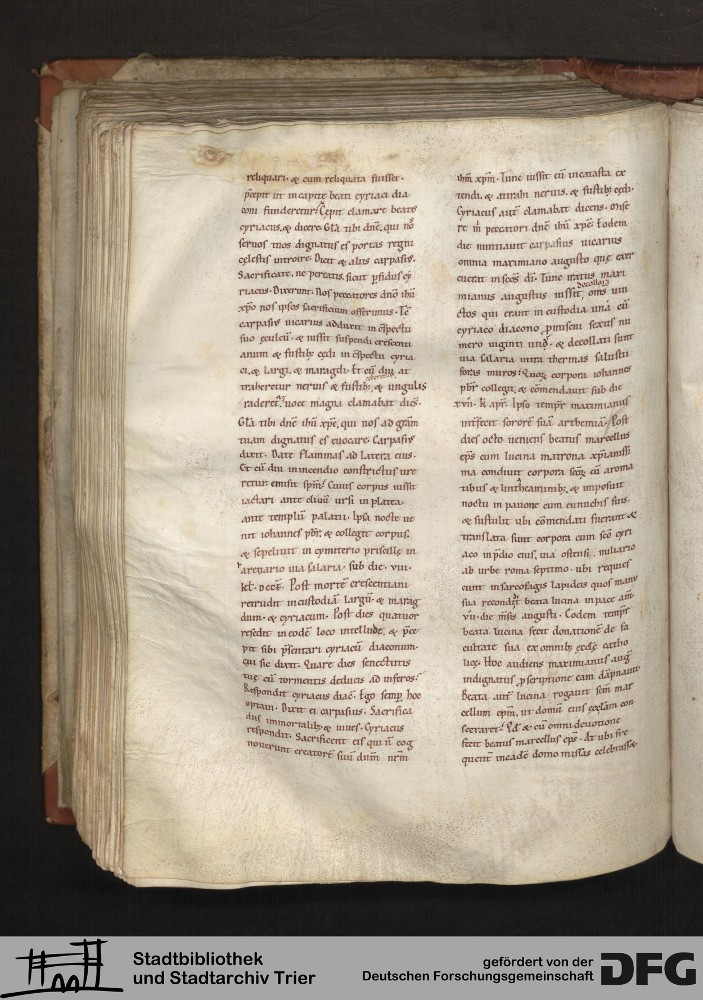 reliquari · & cum reliquata fuisset ·
p̄cepit ut in capite beati cyriaci dia
coni funderetur · Cepit clamare beat᷒
cyriacus, & dicere · Gła tibi dn̄e, qui nō
seruos tuos dignatus es portas regni
cęlestis introire · Dicit & alius carpasi᷒ ·
Sacrificate, ne pereatis, sicut ꝑfidus cy
riacus · Dixerunt · Nos peccatores dn̄o ihū
xp̄o nos ipsos sacrificium offerimus · Tē
carpasi᷒ uicarius adduxit in c̄spectu
suo eculeū · & iussit suspendi crescenti
anum & fustib; cędi in c̄spectu cyria
ci, & largi, & maragdi · Et cū diu at
traheretur neruis & fustib; & ungulis
raderet᷒, uoce magna clamabat dic̄s ·
Gła tibi dn̄e ihū xp̄e, qui nos ad głam
tuam dignatus es euocare · Carpasi᷒
dixit · Date flammas ad latera eius ·
Et cū diu in incendio constrictus ure
retur emisit sp̄m · Cuius corpus iussit
iactari ante cliuū ursi in platea
ante templū palatii · Ipsa nocte ue
nit iohannes pb̄r · & collegit corpus,
& sepeliuit in cymiterio priscille in
arenario uia salaria · sub die · viii ·
kł · Dece᷒ · Post mortē crescentiani
retrudit in custodiā Largū · & marag
dum · & cyriacum · Post dies quatuor
resedit in eodē loco intellude, & p̄ce
pit sibi p̄sentari cyriacū diaconum ·
cui sic dixit · Quare dies senectutis
tuę cū tormentis deducis ad inferos?
Respondit cyriacus diac̄ · Ego semp hoc
optaui · Dixit ei carpasius · Sacrifica
diis immortalib; & uiues · Cyriacus
respondit · Sacrificent eis qui n̄ cog
nouerunt creatorē suū dn̄m nr̄m
ihm xpm · Tunc iussit eū in catasta ex
tendi, & attrahi neruis, & fustib; cędi ·
Cyriacus autē clamabat dicens · Mise
re m̄ peccatori dn̄e ihū xp̄e · Eodem
die nuntiauit carpasius uicarius
omnia maximiano augusto quę exer
cuerat in scōs dī · Tunc iratus maxi
decollari
mianus augustus iussit, om̄s uin
ctos qui erant in custodia unā cū
cyriaco diacono, promiscui sexus nu
mero uiginti un᷒ · & decollati sunt
uia salaria intra thermas salusti
foras muros · Quoꝝ corpora iohannes
pb̄r collegit, & cōmendauit sub die
xvii · k̄ apr̄ · Ipso tempr̄ maximianus
int̄fecit sororē suā arthemiā · Post
dies octo ueniens beatus marcellus
ep̄s cum lucina matrona xp̄ianissi
ma condiuit corpora scōꝝ cū aroma
tibus & linthęaminib; & imposuit
noctu in pauone cum eunuchis suis,
& sustulit ubi cōmendati fuerant · &
translata sunt corpora cum scō cyri
aco in p̄dio eius, uia ostensi, miliario
ab urbe roma septimo · ubi requies
cunt in sarcofagis lapideis quos manu
sua recondit beata lucina in pace ·
vii · die m̄sis augusti · Eodem tempr̄
beata lucina fecit donationē de fa
cultate sua ex omnib; ęcclę catho
licę · Hoc audiens maximianus aug᷒
indignatus ꝓscriptione eam dāpnauit ·
Beata aut̄ lucina rogauit sc̄m mar
cellum ep̄m, ut domū eius ęccłam con
secraret · Qđ & cū omni deuotione
fecit beatus marcellus ep̄s · At ubi fre
quent̄ in eadē domo missas celebrasse
Stadtbibliothek
und Stadtarchiv Trier
gefördert von der
Deutschen Forschungsgemeinschaft
DFG